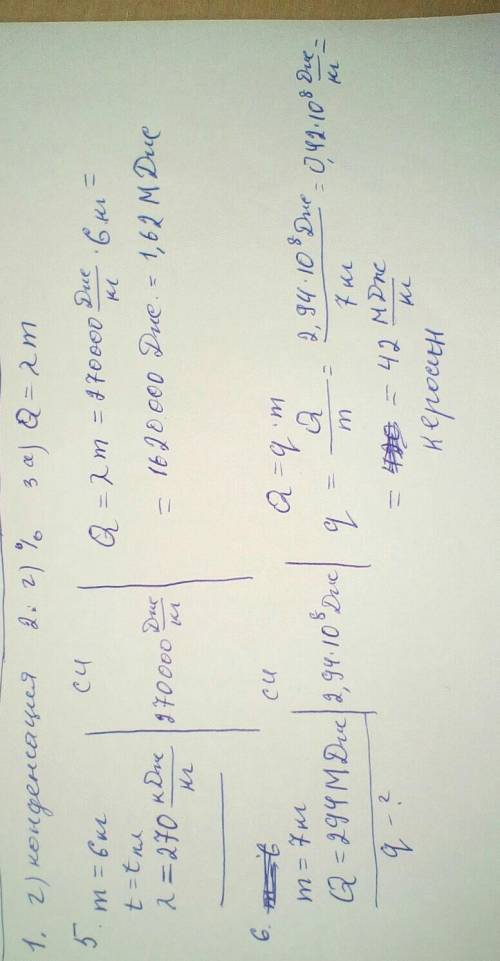 1. г) конденсация 2. г) % 3 а) Q = λm
5. m = 6 кг
t = tпл
λ = 270 кДж/кг
СИ
270000 Дж/кг
Q = λm = 270000 Дж/кг · 6 кг =
= 1620.000 Дж = 1,62 МДж
6.
m = 7 кг
Q = 294 МДж
q - ?
СИ
2,94·10⁸ Дж
Q = q·m
q = Q/m = 2,94·10⁸ Дж/7 кг = 0,42·10⁸ Дж/кг =
= 42 МДж/кг
керосин